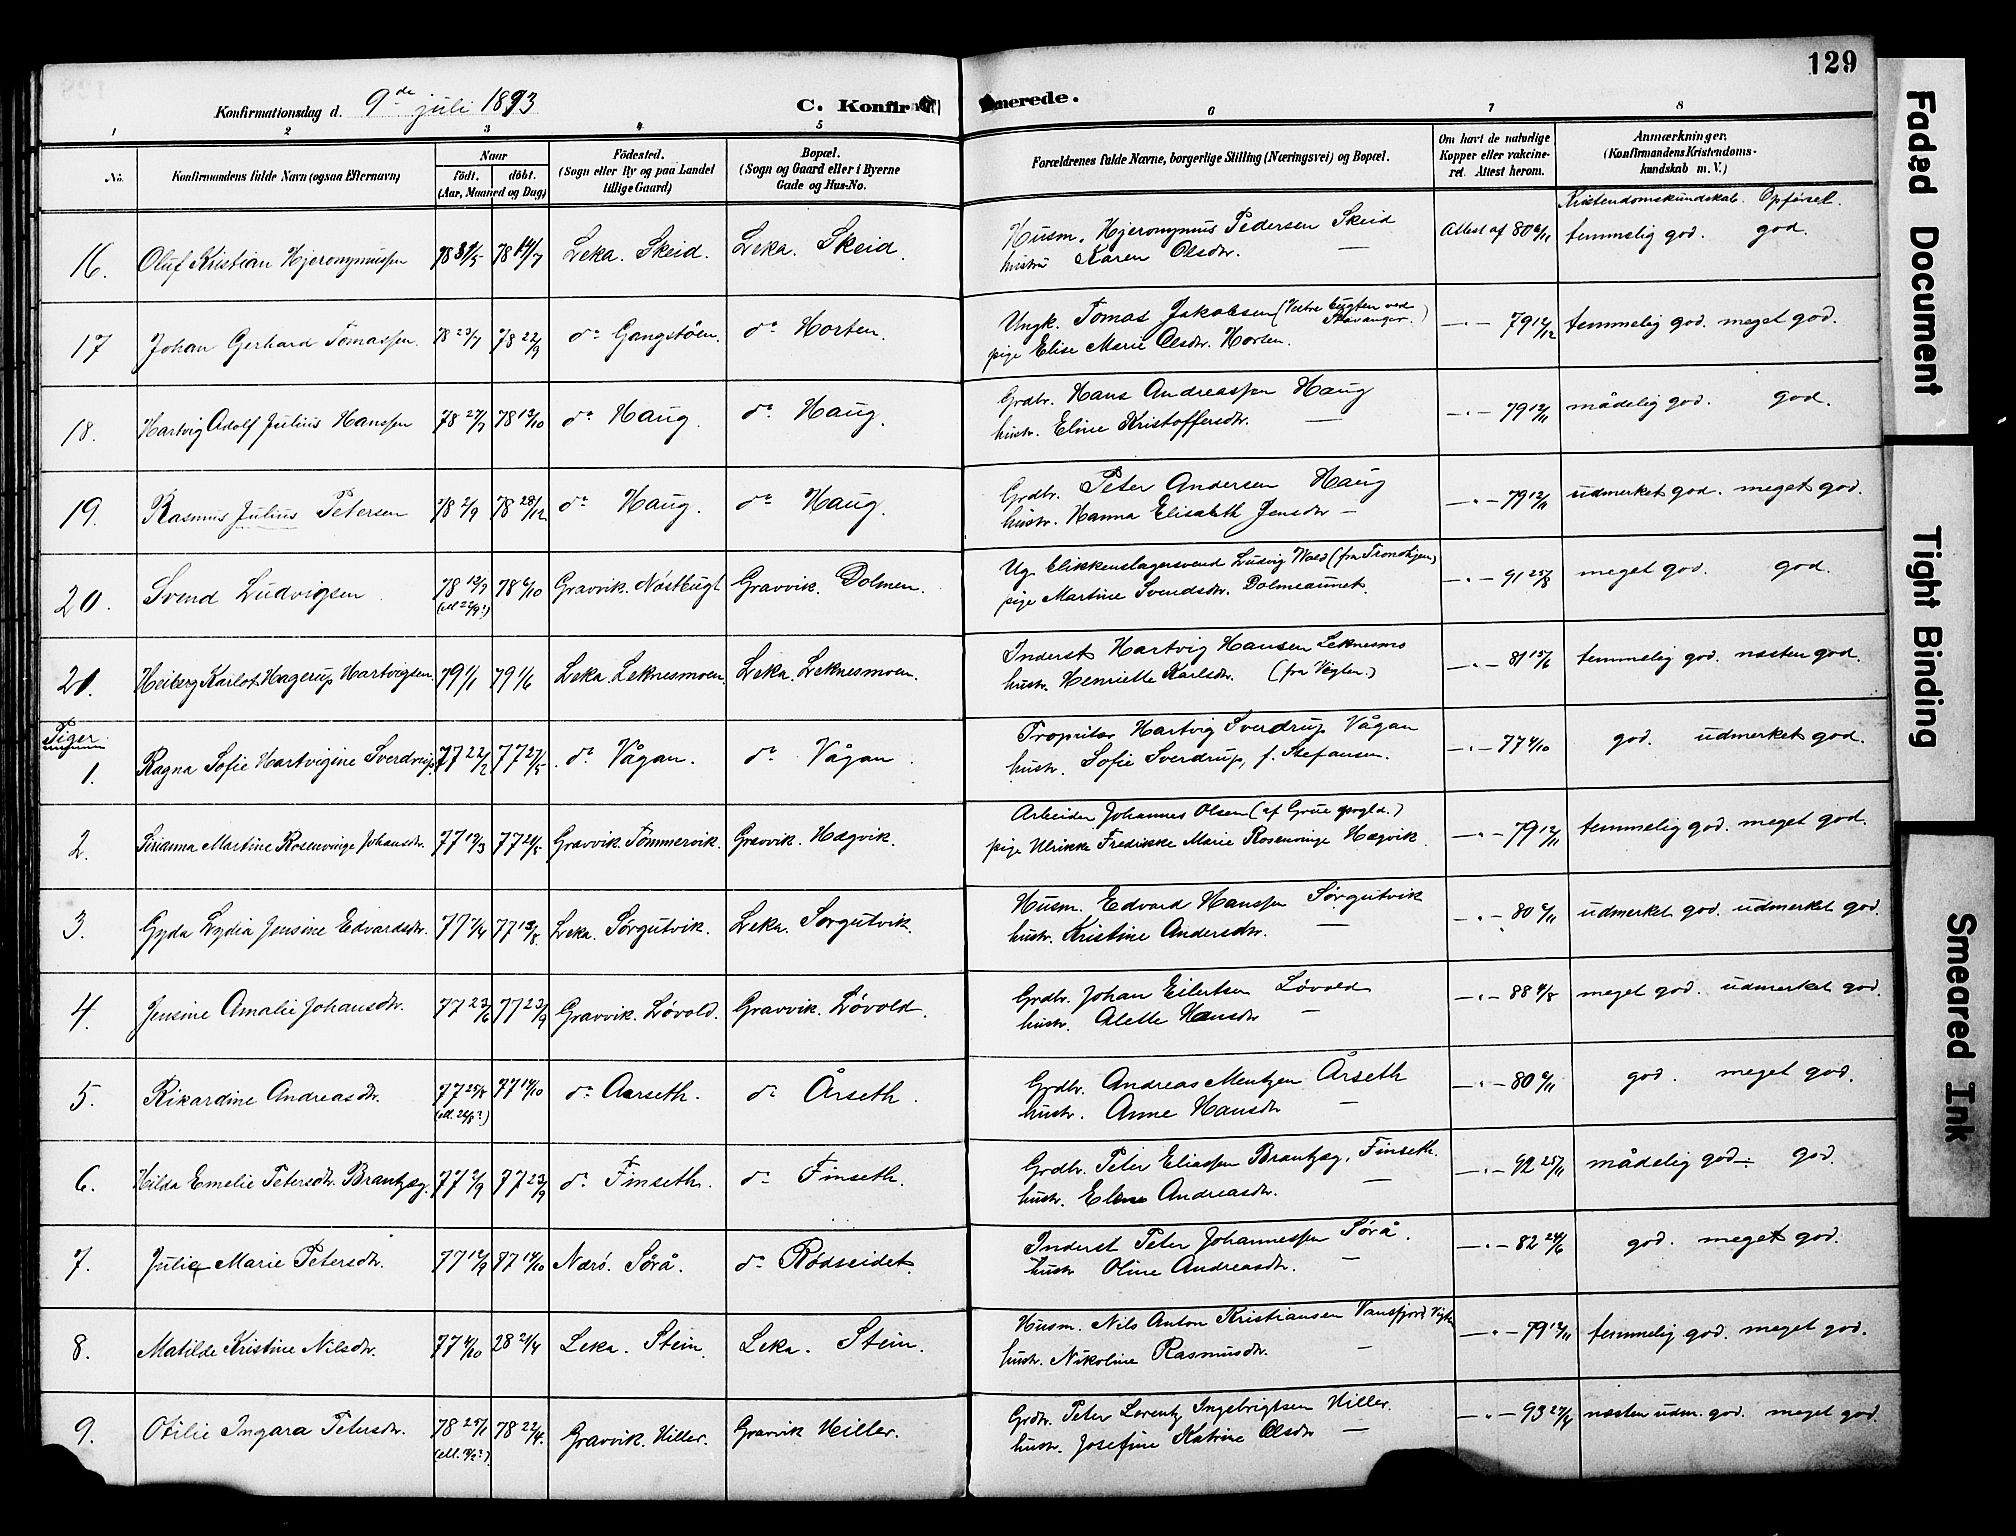 129
Konfirmationsdag d. 9de juli 1893 C. Konfirmerede.
1 2 3 4 5 6 7 8
No. Konfirmandens fulde Navn (ogsaa Efternavn) Naar født. døbt. (Aar, Maaned og Dag) Fødested. (Sogn eller By og paa Landet tillige Gaard) Bopæl. (Sogn og Gaard eller i Byerne Gade og Hus-No. Forældrenes fulde Navne, borgerlige Stilling (Næringsvei) og Bopæl. Om havt de naturlige Kopper eller vakcineret. Attest herom. Anmærkninger. (Konfirmandens Kristendomskundskab m. V.)
Kristendomskundskab. Opførsel.
16. Oluf Kristian Hjeronymussen 78 31/5 78 14/7 Leka. Skeid. Leka. Skeid. Husm. Hjeronymus Pedersen Skeid Attest af 80 6/11 temmelig god. god.
hustru Karen Olsdtr. —
17 Johan Gerhard Tomassen 78 23/7 78 22/9 do Gangstøen. do Horten. Ungk. Tomas Jakobsen (Vestre bugten ved Stavanger.) —"— 79 12/12 temmelig god. meget god.
pige Elise Marie Olsdtr. Horten.
18. Hartvig Adolf Julius Hanssen 78 27/7 78 13/10 do Haug. do Haug. Grdbr. Hans Andreassen Haug —"— 79 12/11 mådelig god. god.
hustr. Eline Kristoffersdtr. —
19. Rasmus Julius Petersen 78 2/9 78 28/12 do Haug. do Haug. Grdbr. Peter Andersen Haug —"— 79 12/11 udmerket god. meget god.
hustr. Hanna Elisabeth Jensdtr —
20. Svend Ludvigsen. 78 12/9 78 6/10 Gravvik. Nøstbugt Gravvik. Dolmen. Ug. blikkenslagersvend Ludvig Wold (fra Trondhjem) —"— 91 25/8 meget god. god.
(ell 22/9?) pige Martine Svendsdtr. Dolmeaunet.
21. Heiberg Karlot Hagerup Hartvigsen 79 1/1 79 1/6 Leka. Leknesmoen. Leka. Leknesmoen. Inderst Hartvig Hansen Leknesmo —"— 81 15/6 temmelig god. næsten god.
hustr. Henriette Karlsdtr. (fra Vigten.)
Piger
1. Ragna Sofie Hartvigine Sverdrup 77 22/2 77 27/5 do Vågan. do Vågan. Propritær Hartvig Sverdrup Vågan —"— 77 4/10 god. udmerket god.
hustr. Sofie Sverdrup, f. Stefansen.
2. Sirianna Martine Rosenvinge Johansdtr. 77 19/3 77 21/5 Gravvik. Tømmervik. Gravvik. Hægvik. Arbeider Johannes Olsen (af Grue prgld.) —"— 79 12/11 temmelig god. meget god.
pige Ulrikke Fredrikke Marie Rosenvinge Hægvik.
3. Gyda Lydia Jensine Edvardsdtr. 77 7/4 77 13/5 Leka. Sørgutvik. Leka. Sørgutvik. Husm. Edvard Hanssen Sørgutvik —"— 80 6/11 udmerket god. udmerket god.
hustr. Kristine Andersdtr. —
4. Jensine Amalie Johansdtr. 77 23/6 77 23/9 Gravvik. Løvold. Gravvik. Løvold. Grdbr. Johan Eilertsen Løvold —"— 88 4/8 meget god. udmerket god.
hustr. Alette Hansdtr —
5. Rikardine Andreasdtr. 77 25/8 77 14/10 do Aarseth. do Årseth. Grdbr. Andreas Mentzen Årseth —"— 80 6/11 god. meget god.
(ell. 26/8?) hustr. Anne Hansdtr —
6. Hilda Emelie Petersdtr. Brantzæg. 77 2/9 77 23/9 do Finseth. do Finseth. Grdbr. Peter Eliassen Brantzæg, Finseth. —"— 92 25/11 mådelig god. god.
hustr. Elene Andreasdtr. —
7. Julie Marie Petersdtr. 77 12/9 77 14/10 Nærø. Sørå. do Rødseidet. Inderst Peter Johannessen Sørå. —"— 82 24/6 god. meget god.
hustr Oline Andreasdtr. —
8. Matilde Kristine Nilsdtr. 77 4/10 28 21/4 Leka. Stein. Leka. Stein. Husm. Nils Anton Kristiansen Vansfjord Vigt. —"— 79 12/11 temmelig god. meget god.
hustr. Nikoline Rasmusdtr. —
9. Otilie Ingara Petersdtr. 78 25/1 78 22/4. Gravvik. Hiller. Gravvik Hiller. Grdbr. Peter Lorentz Ingebrigtsen Hiller. —"— 93 27/4 næsten udm. god. meget god.
hustr. Josefine Katrine Olsdtr —
Faded Document
Tight Binding
Smeared Ink